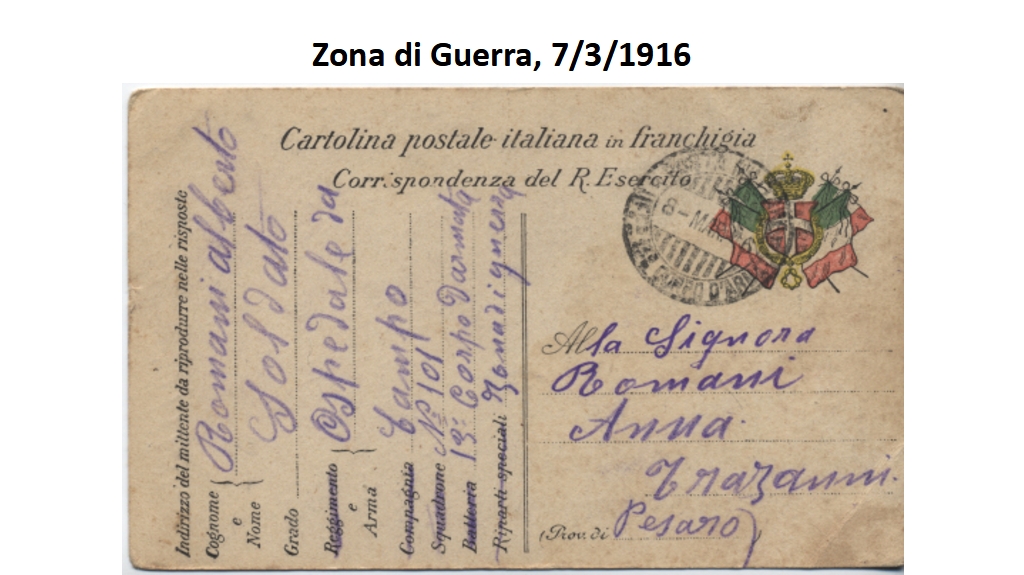 Zona di Guerra, 7/3/1916
Cartolina postale italiana in franchigia
Corrispondenza del R. Esercito
8-MAR
CORPO D'AR
Indirizzo del mittente da riprodurre nelle risposte
Cognome
e
Nome
Romani alberto
Grado
Soldato
Reggimento
e
Arma
Ospedale da
Compagnia
Campo
Squadrone
N° 101
Batteria
13° Corpo Darmata
Riparti speciali
Zona di guerra
Alla Signora
Romani
Anna
Trazanni.
(Prov. di Pesaro)